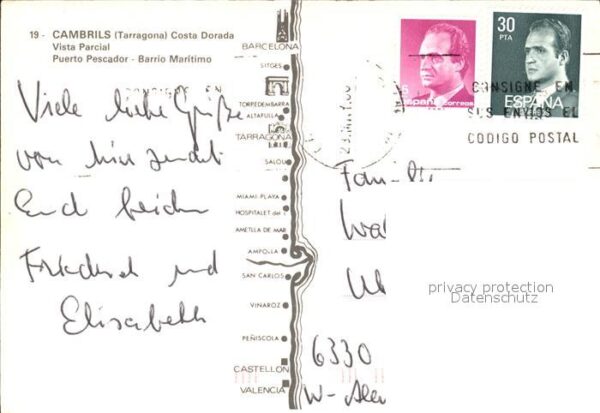 19 - CAMBRILS (Tarragona) Costa Dorada
Vista Parcial
Puerto Pescador - Barrio Marítimo
CONSIGNE EN
Viele liebe Grüße
von hier sendet
Euch beiden
Friederich und
Elisabeth
BARCELONA
SITGES
TORREDEMBARRA
ALTAFULLA
TARRAGONA
SALOU
MIAMI PLAYA
HOSPITALET del I
AMETLLA DE MAR
AMPOLLA
SAN CARLOS
VINAROZ
PEÑISCOLA
CASTELLON
VALENCIA
españa correos
30
PTA
ESPAÑA
CONSIGNE EN
SUS ENVIOS EL
CODIGO POSTAL
Familie
privacy protection
Datenschutz
6330